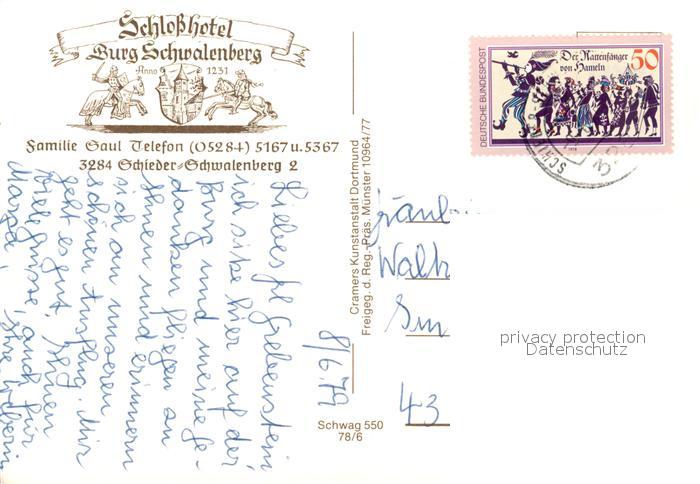 Schloßhotel
Burg Schwalenberg
Anno 1231
Familie Saul Telefon (05284) 5167 u. 5367
3284 Schieder-Schwalenberg 2
DEUTSCHE BUNDESPOST
Der Rattenfänger
von Hameln
50
Cramers Kunstanstalt Dortmund
Freigeg. d. Reg.-Präs. Münster 10964/77
8/6.79
Liebes Frl Grebenstein
ich sitze hier auf der
Burg und meine Ge-
danken fliegen zu
Ihnen und erinnern
mich an unseren
schönen Ausflug. Mir
geht es gut, Ihnen
viele Grüsse, auch für
Ihre
Fräulein
Walt
43
Schwag 550
78/6
privacy protection
Datenschutz